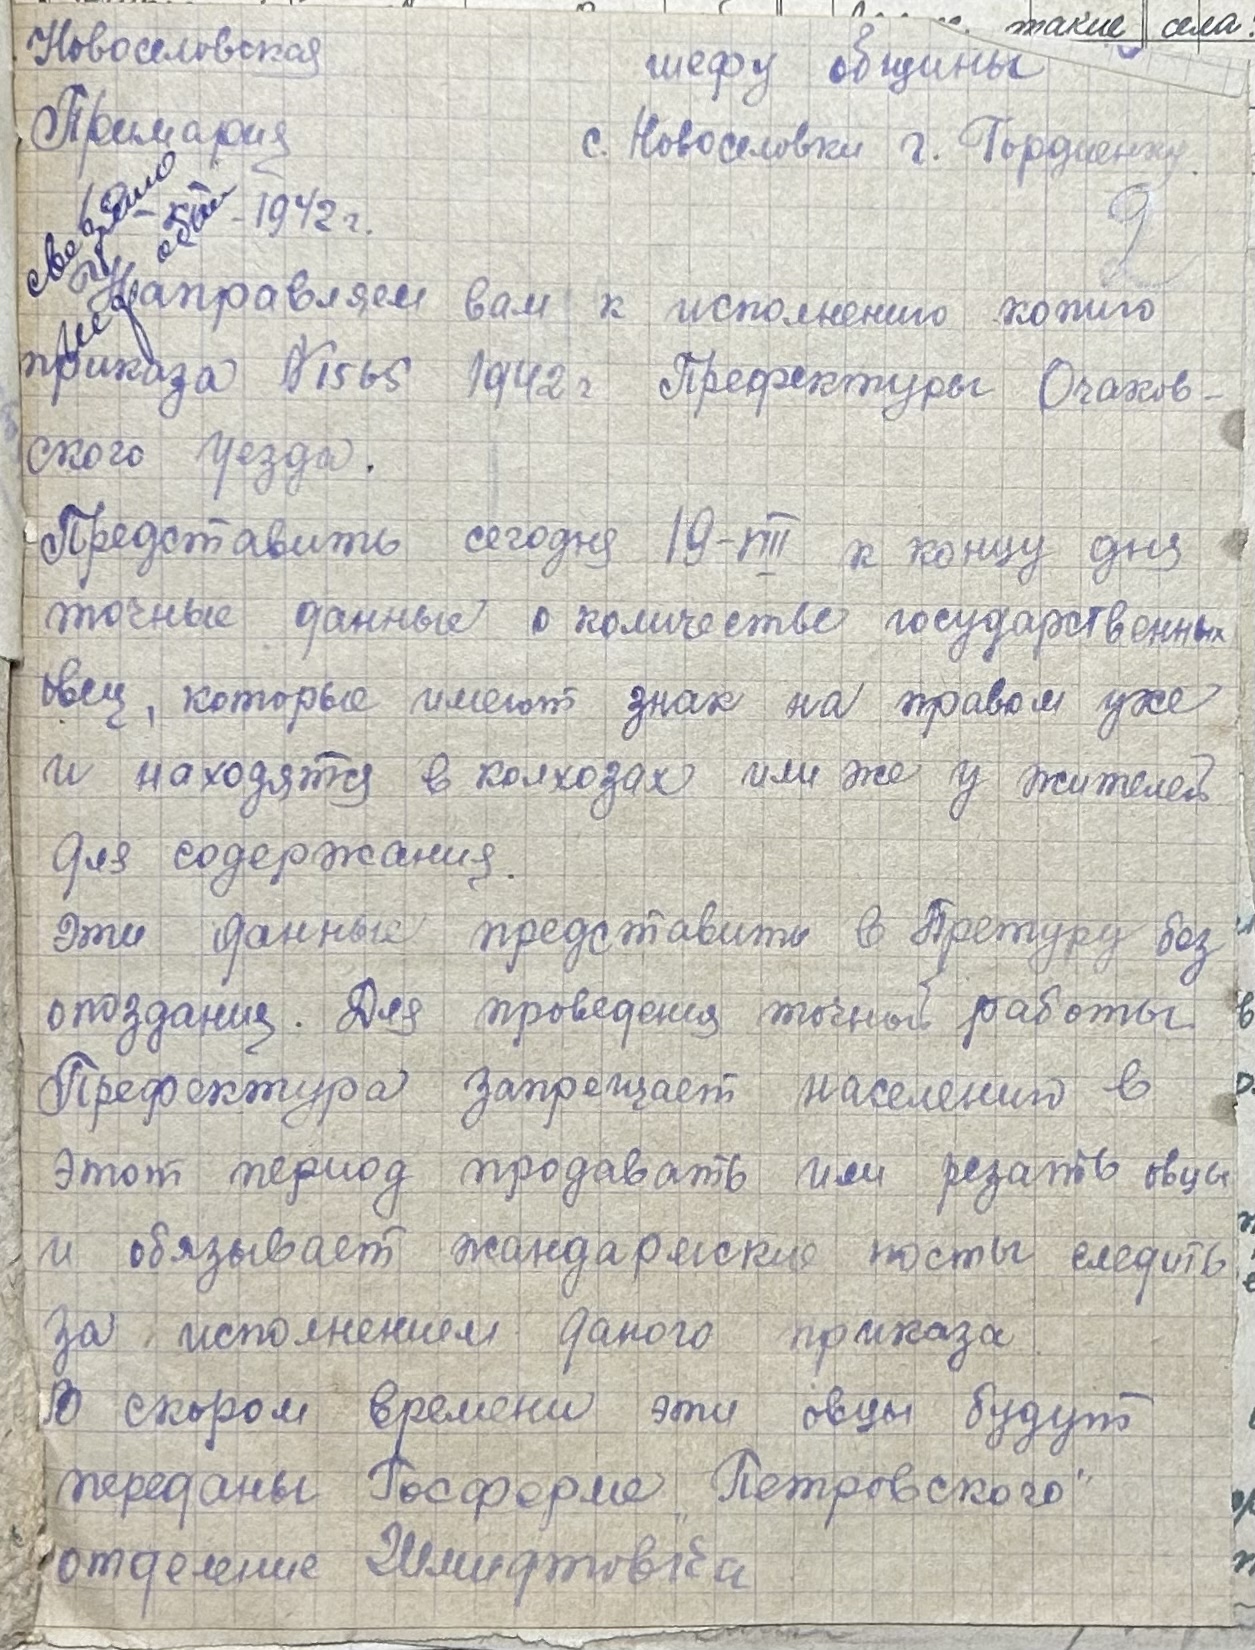 такие села:
Новоселовская
шефу общины
Примария
с. Новоселовки г. Гордиенку
2
19 - VIII - 1942 г.
Направляем вам к исполнению копию
приказа №1565 1942 г Префектуры Очаков-
ского уезда.
Представить сегодня 19-VIII к концу дня
точные данные о количестве государственных
овец, которые имеют знак на правом ухе
и находятся в колхозах или же у жителей
для содержания.
Эти данные представить в Претуру без
опоздания. Для проведения точной работы
Префектура запрещает населению в
этот период продавать или резать овцы
и обязывает жандармские посты следить
за исполнением даного приказа
В скором времени эти овцы будут
переданы Госферме „Петровского"
отделение